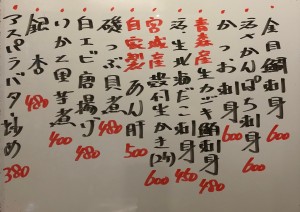 金目鯛刺身 600
活かんぱち刺身 600
かつお刺身 600
青森産生カジキ鮪刺身 480
活生北海だこ刺身 450
宮城産殻付生かき(2ケ) 600
自家製あん肝 500
磯つぶ貝煮 480
白エビ唐揚げ 480
いかと里芋煮 400
銀杏 480
アスパラバタ炒め 380